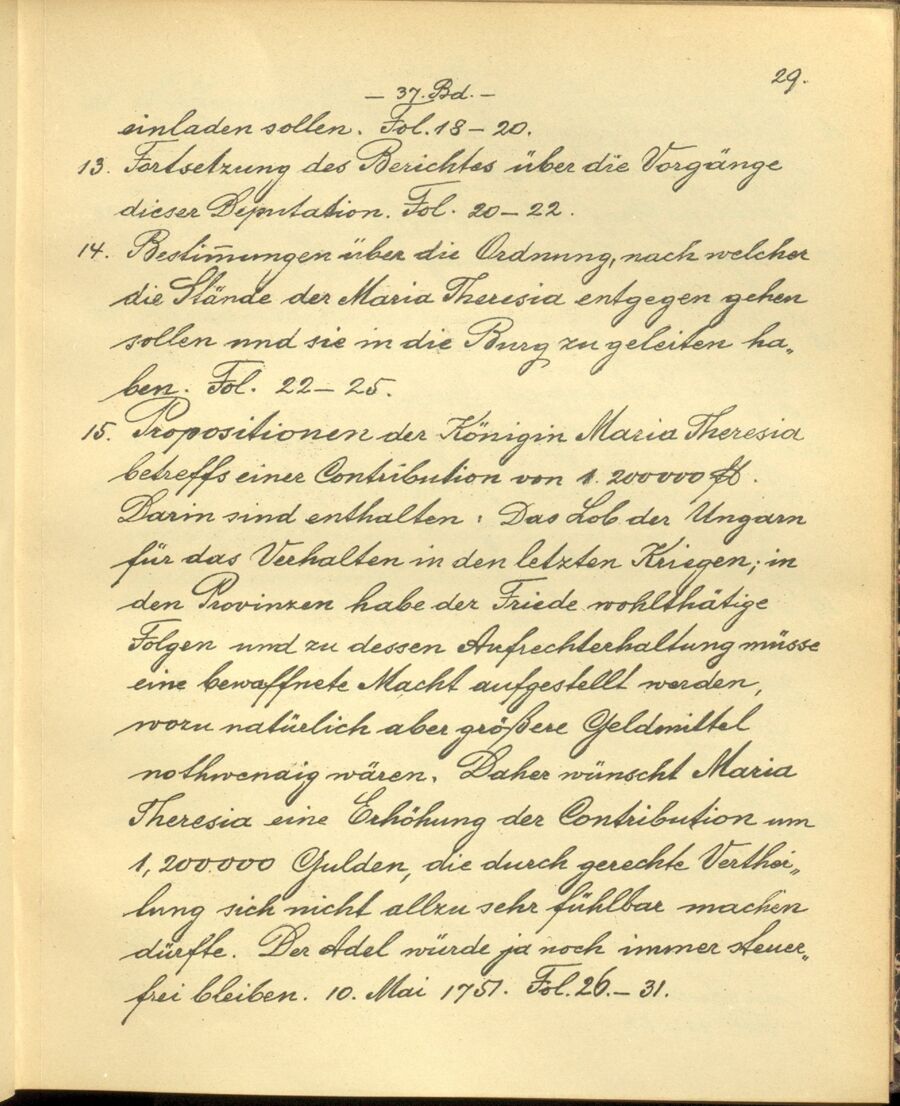 29.
– 37. Bd. –
einladen sollen. Fol. 18 – 20.
13. Fortsetzung des Berichtes über die Vorgänge
dieser Deputation. Fol. 20 – 22.
14. Bestim̅ungen über die Ordnung, nach welcher
die Stände der Maria Theresia entgegen gehen
sollen und sie in die Burg zu geleiten ha„
ben. Fol. 22 – 25.
15. Propositionen der Königin Maria Theresia
betreffs einer Contribution von 1.200000 fl.
Darin sind enthalten: Das Lob der Ungarn
für das Verhalten in den letzten Kriegen; in
den Provinzen habe der Friede wohlthätige
Folgen und zu dessen Aufrechterhaltung müsse
eine bewaffnete Macht aufgestellt werden,
wozu natürlich aber größere Geldmittel
nothwendig wären. Daher wünscht Maria
Theresia eine Erhöhung der Contribution um
1,200.000 Gulden, die durch gerechte Verthei„
lung sich nicht allzu sehr fühlbar machen
dürfte. Der Adel würde ja noch immer steuer„
frei bleiben. 10. Mai 1751. Fol. 26. – 31.